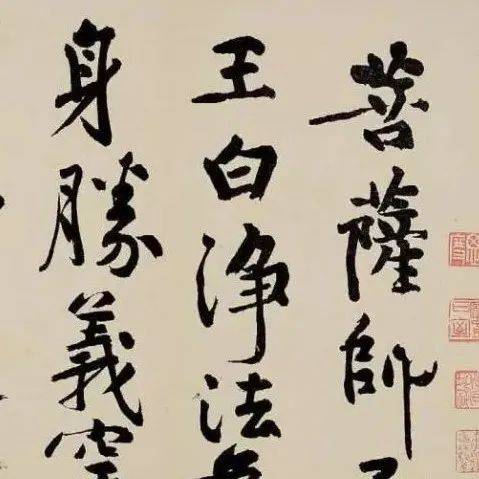 菩薩師
王白浄法
身勝義空